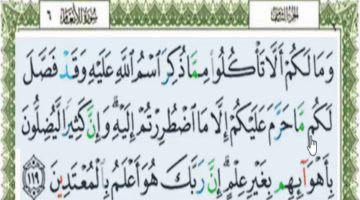 سُورَةُ الأَنْعَامِ ٦
وَمَا لَكُمْ أَلَّا تَأْكُلُوا مِمَّا ذُكِرَ اسْمُ اللَّهِ عَلَيْهِ وَقَدْ فَصَّلَ
لَكُم مَّا حَرَّمَ عَلَيْكُمْ إِلَّا مَا اضْطُرِرْتُمْ إِلَيْهِ وَإِنَّ كَثِيرًا لَّيُضِلُّونَ
بِأَهْوَآئِهِم بِغَيْرِ عِلْمٍ إِنَّ رَبَّكَ هُوَ أَعْلَمُ بِالْمُعْتَدِينَ ١١٩